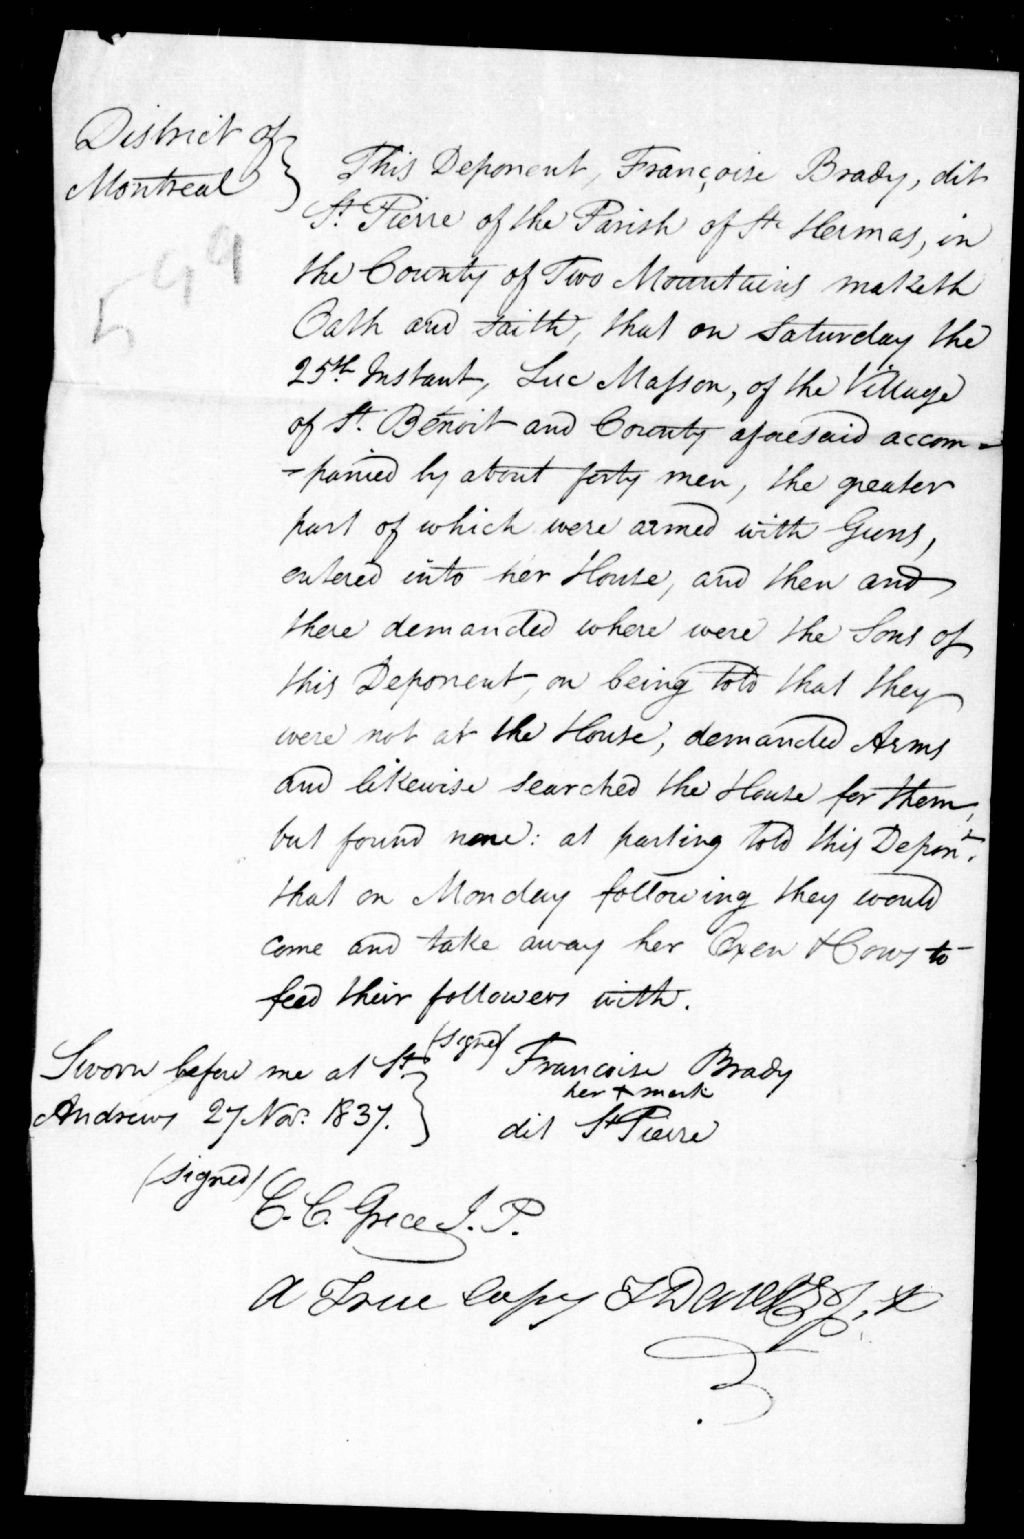 District of
Montreal
599
This Deponent, Françoise Brady, dit
St. Pierre of the Parish of St. Hermas, in
the County of Two Mountains maketh
Oath and saith, that on Saturday the
25th. Instant, Luc Masson, of the Village
of St. Benoit and County aforesaid accom-
-panied by about forty men, the greater
part of which were armed with Guns,
entered into her House, and then and
there demanded where were the Sons of
this Deponent, on being told that they
were not at the House, demanded Arms
and likewise searched the House for them,
but found none: at parting told this Depont.
that on Monday following they would
come and take away her Oxen & Cows to
feed their followers with.
Sworn before me at St.
Andrews 27 Nov. 1837.
(signed) Francoise Brady
her + mark
dit St Pierre
(signed)
C. C. Grece J. P.
A True Copy